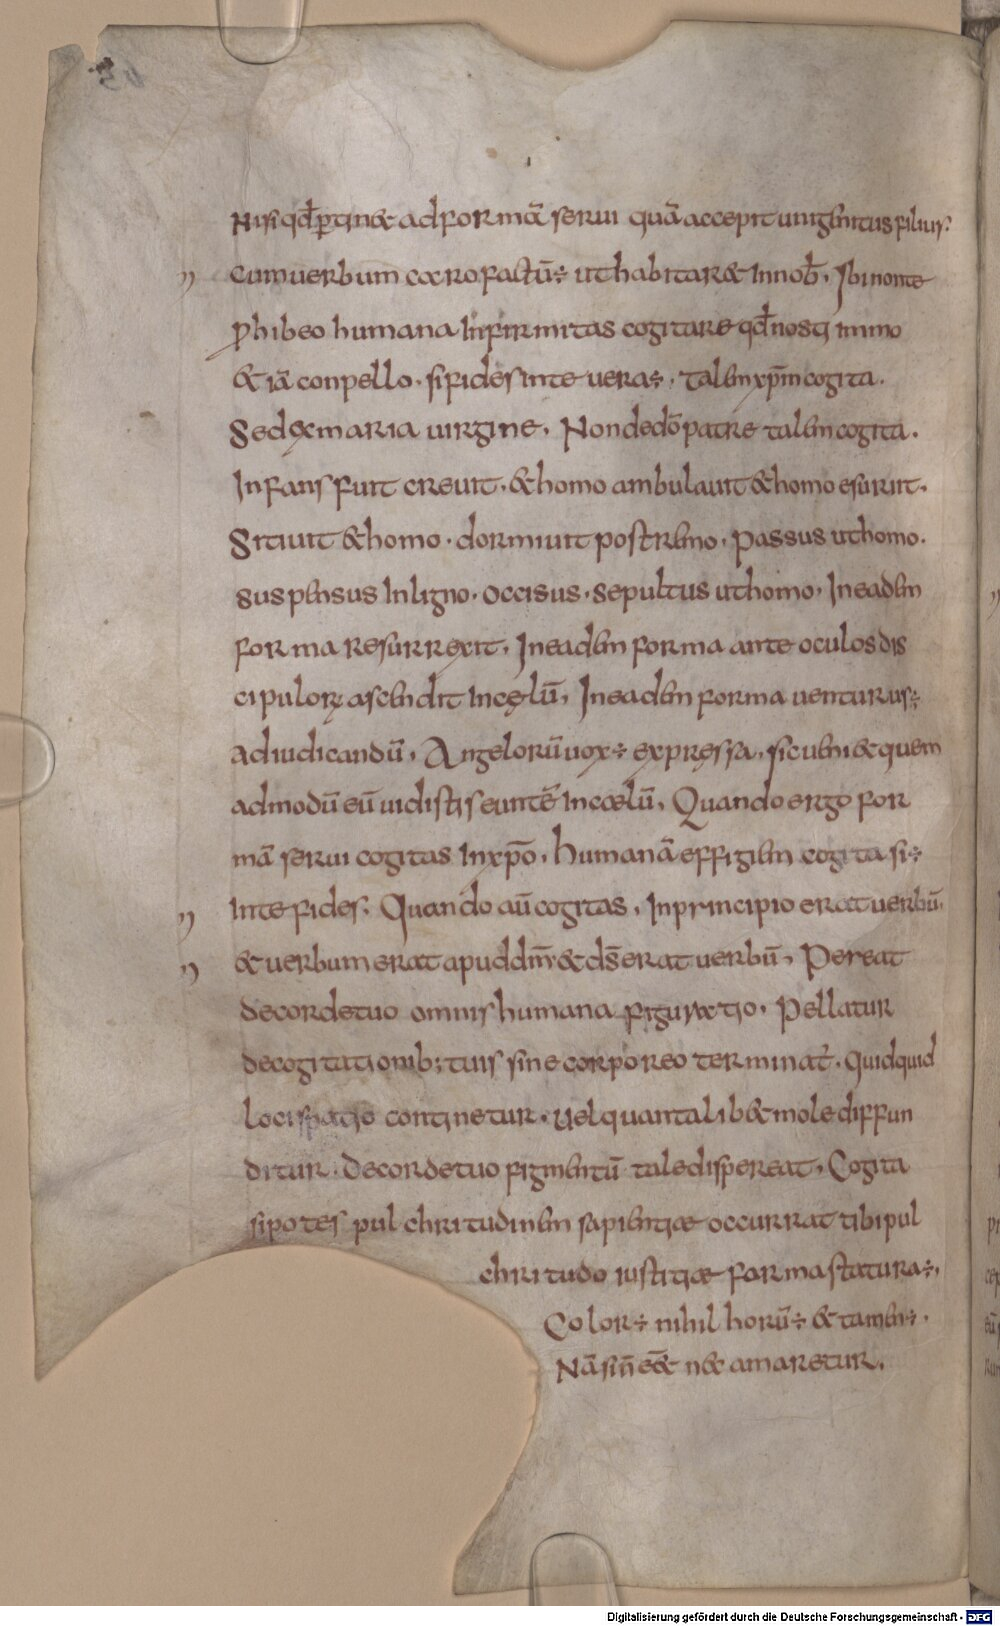 Nisi qđ ꝑtinet ad formā serui quā accepit unigenitus filius.
cum uerbum caro factū÷ ut habitaret In nob̄. Ibi non te
ꝓhibeo humana Infirmitas cogitare qđ nosti immo
& iā conpello. si fides in te uera÷. talem xp̄m cogita.
Sed ex maria uirgine. Non de dō patre talem cogita.
Infans fuit creuit. & homo ambulauit & homo esuriit.
Sitiuit & homo. dormiuit postremo. passus ut homo.
suspensus In ligno. occisus. sepultus ut homo. In eadem
forma resurrexit. In eadem forma ante oculos dis
cipulorꝝ ascendit In cęlū. In eadem forma uenturus÷
ad iudicandū. Angelorū uox÷ expressa. sic ueniet quem
admodū eū uidistis euntē In cœlū. Quando ergo for
mā serui cogitas In xp̄o. humanā effigiem cogita si÷
In te fides. Quando aū cogitas. In principio erat uerbū.
& uerbum erat apud dm̄ & ds̄ erat uerbū. Pereat
de corde tuo omnis humana figuratio. Pellatur
de cogitationib; tuis sine corporeo terminat̄. quidquid
loci spatio continetur. uel quantalibet mole diffun
ditur. de corde tuo figmentū tale dispereat. Cogita
si potes pulchritudinem sapientiæ occurrat tibi pul
chritudo iustitiæ forma statura÷.
Color÷ nihil horū÷ & tamen÷.
Nā si n̄ eēt nec amaretur.
Digitalisierung gefördert durch die Deutsche Forschungsgemeinschaft - DFG